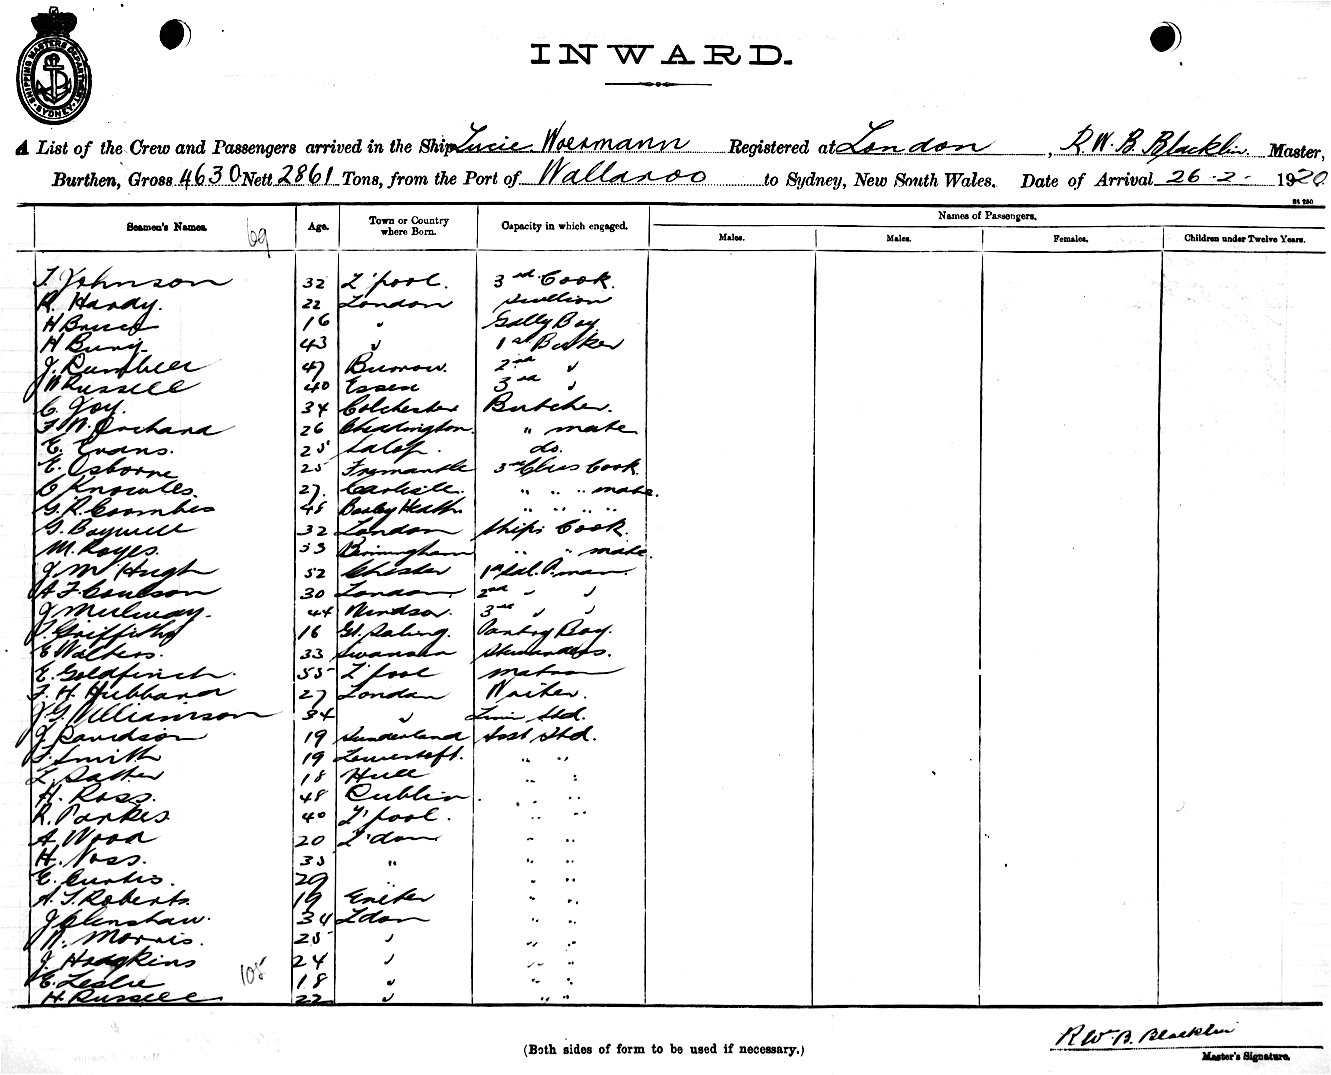 SHIPPING MASTERS DEPARTMENT SYDNEY
INWARD.
A List of the Crew and Passengers arrived in the Ship Lucie Woermann Registered at London, R. W. B. Blacklin Master,
Burthen, Gross 4630 Nett 2861 Tons, from the Port of Wallaroo to Sydney, New South Wales. Date of Arrival 26.2. 1920
Names of Passengers.
Seamen's Names. 69 Age. Town or Country where Born. Capacity in which engaged. Males. Males. Females. Children under Twelve Years.
T. Johnson 32 L'pool. 3rd Cook.
R. Hardy. 22 London Scullion
H Bruce 16 " Gally Boy.
H Bury. 43 " 1st Baker
J. Rumbell 47 Burrow. 2nd "
W Russell 40 Essex 3rd "
C. Joy. 34 Colchester Butcher.
F. W. Orchard 26 " mate
E. Evans. 25 Salop. do.
E. Osborne 25 Fremantle 3rd Class Cook.
C Knowles. 27. Carlisle. " " " mate.
G. R. Coombes 48 Bexley Heath. " " " "
G. Bagwell 32 London Ships Cook.
M. Royes. 33 Birmingham " " mate.
J. McHugh 52 Chester 1st Sal. P. man.
A F. Coulson 30 London. 2nd " "
J Mulway. 44 Windsor. 3rd " "
Griffiths 16 Gt. Saling. Pantry Boy.
E Walters. 33 Swansea Stewardess.
E. Goldfinch. 55 L'pool matron
F. H. Hubband 27 London Writer.
J. G. Williamson 34 " Linen Std.
J. Davidson 19 Sunderland Asst Std.
Smith 19 Lowestoft. " "
L. Salter 18 Hull " "
H. Ross. 48 Dublin " "
R. Parkes 40 L'pool. " "
A. Wood 20 L'don " "
H. Voss. 35 " " "
E. Curtis. 29 " " "
A. T. Roberts. 19 Exeter " "
J Clenshaw. 34 L'don " "
W. Morris. 25 " " "
J. Hodgkins 24 " " "
E. Leslie 105 18 " " "
H. Russell 22 " " "
(Both sides of form to be used if necessary.)
R W B. Blacklin
Master's Signature.